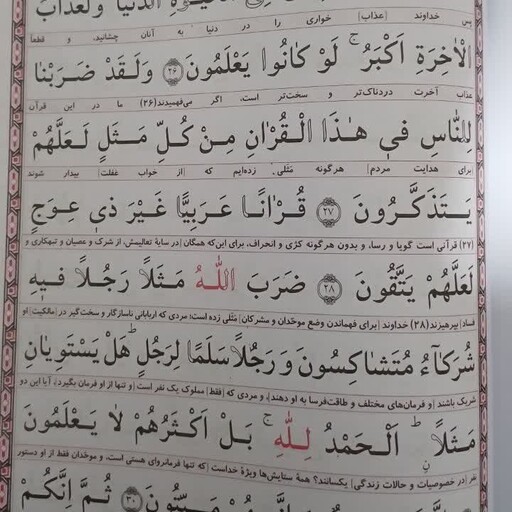 الدنیا ولعذاب
پس خداوند |عذاب| خواری را در دنیا به آنان چشانید، و قطعاً
الاخرة اکبر لو کانوا یعلمون ﴿۲۶﴾ ولقد ضربنا
عذاب آخرت دردناک‌تر و سخت‌تر است، اگر می‌فهمیدند (۲۶) ما در این قرآن
للناس فی هٰذا القرءان من کل مثل لعلهم
برای هدایت مردم| هرگونه مثلی زده‌ایم که |از خواب غفلت| بیدار شوند
یتذکرون ﴿۲۷﴾ قرءانا عربیا غیر ذی عوج
(۲۷) قرآنی است گویا و رسا، و بدون هرگونه کژی و انحراف، برای این‌که همگان |در سایهٔ تعالیمش، از شرک و عصیان و تبهکاری و
لعلهم یتقون ﴿۲۸﴾ ضرب الله مثلا رجلا فیه
فساد| بپرهیزند (۲۸) خداوند |برای فهماندن وضع موحّدان و مشرکان| مثلی زده است: مردی که اربابانی ناسازگار و سخت‌گیر در |مالکیت| او
شرکاء متشاکسون ورجلا سلما لرجل هل یستویان
شریک باشند |و فرمان‌های مختلف و طاقت‌فرسا به او دهند|، و مردی که |فقط| مملوک یک نفر است |و تنها از او فرمان بگیرد|، آیا این دو
مثلا الحمد لله بل اکثرهم لا یعلمون
نفر |در خصوصیات و حالات زندگی| یکسانند؟ همهٔ ستایش‌ها ویژهٔ خداست |که تنها فرمانروای هستی است، و موحّدان فقط از او دستور
میتون ﴿۳۰﴾ ثم انکم